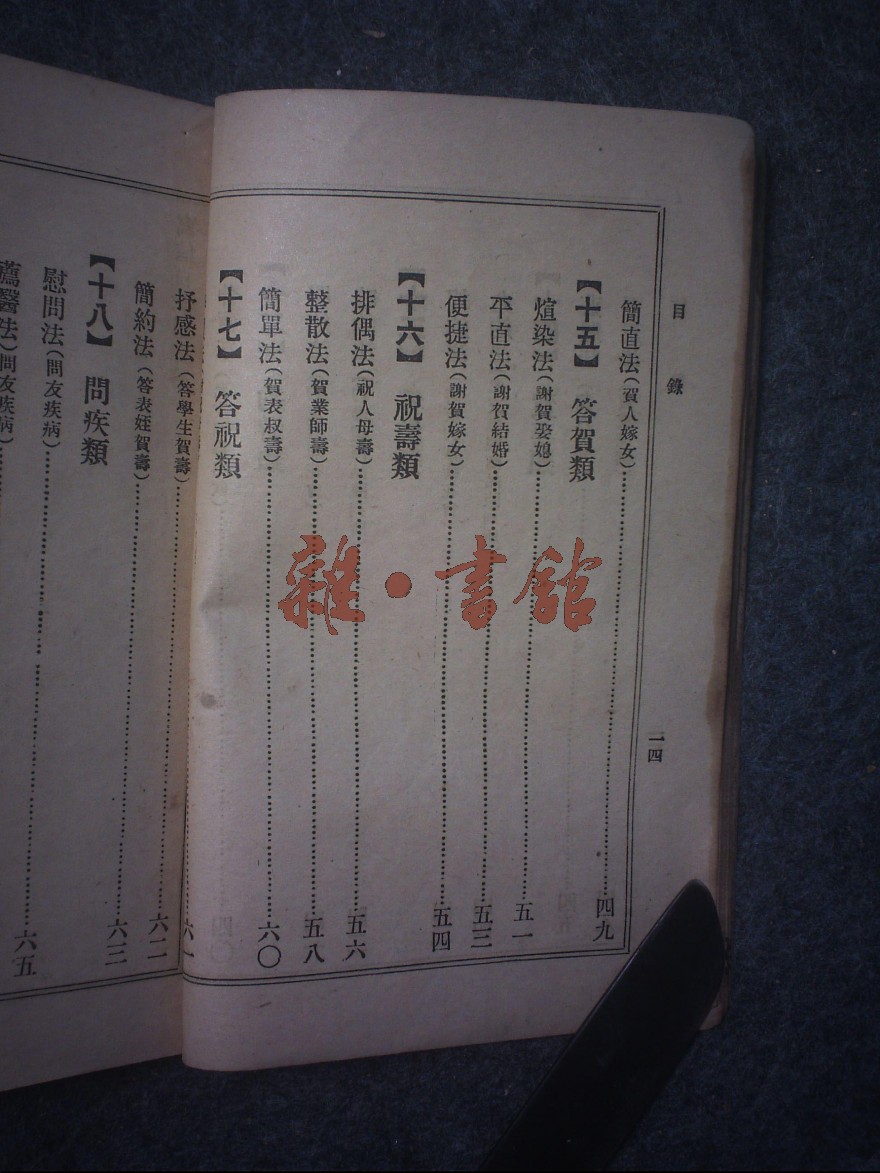 目錄
一四
簡直法(賀人嫁女)……四九
【十五】 答賀類
煊染法(謝賀娶媳)……五一
平直法(謝賀結婚)……五三
便捷法(謝賀嫁女)……五四
【十六】 祝壽類
排偶法(祝人母壽)……五六
整散法(賀業師壽)……五八
簡單法(賀表叔壽)……六〇
【十七】 答祝類
六一
抒感法(答學生賀壽)……六二
簡約法(答表姪賀壽)……六三
【十八】 問疾類
慰問法(問友疾病)……六五
薦醫法(問友疾病)
雜·書館